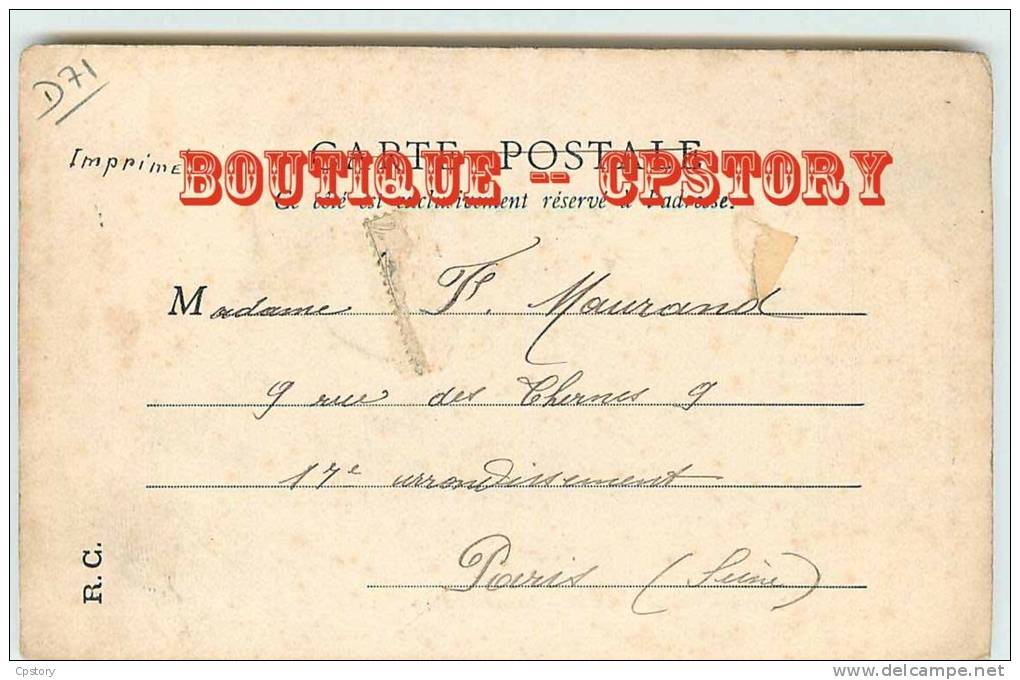 D71
Imprimé
CARTE POSTALE
BOUTIQUE -- CPSTORY
Ce côté est exclusivement réservé à l'adresse.
Madame F. Maurand
9 rue des Thernes 9
17e arrondissement
Paris (Seine)
R. C.
Cpstory
www.delcampe.net